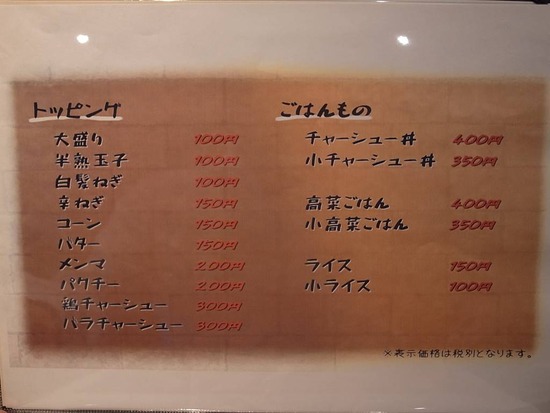 トッピング
大盛り 100円
半熟玉子 100円
白髪ねぎ 100円
辛ねぎ 150円
コーン 150円
バター 150円
メンマ 200円
パクチー 200円
鶏チャーシュー 300円
バラチャーシュー 300円
ごはんもの
チャーシュー丼 400円
小チャーシュー丼 350円
高菜ごはん 400円
小高菜ごはん 350円
ライス 150円
小ライス 100円
※表示価格は税別となります。